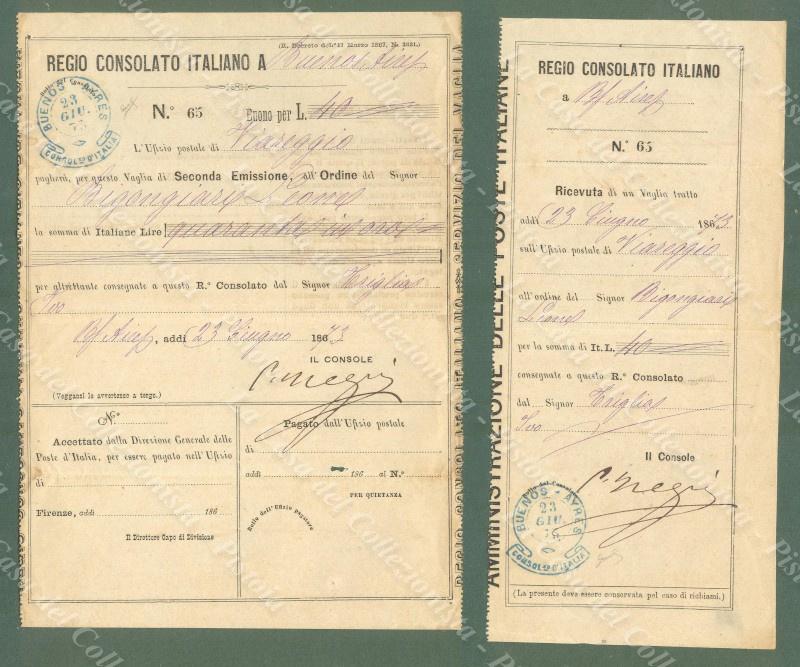 (R. Decreto del 17 Marzo 1867, N. 3631.)
REGIO CONSOLATO ITALIANO A Buenos Aires
BUENOS - AYRES
23
GIU.
73
CONSOL. D'ITALIA
N.° 65 Buono per L. 40
L'Ufizio postale di Viareggio
pagherà, per questo Vaglia di Seconda Emissione, all'Ordine del Signor
Bigongiari Leone
la somma di Italiane Lire quaranta in oro
per altrettante consegnate a questo R.° Consolato dal Signor Triglia
Ivo
Bs Aires, addì 23 Giugno 1873
IL CONSOLE
C. Negri
(Vegganzi le avvertenze a tergo.)
N.°
Accettato dalla Direzione Generale delle
Poste d'Italia, per essere pagato nell'Ufizio
di
Firenze, addì 186
Il Direttore Capo di Divisione
Pagato dall'Ufizio postale
di
addì 186 al N.°
PER QUIETANZA
Bollo dell'Ufizio pagatore
REGIO CONSOLATO ITALIANO
SERVIZIO DEI VAGLIA
AMMINISTRAZIONE DELLE POSTE ITALIANE
REGIO CONSOLATO ITALIANO
a Bs Aires
N.° 65
Ricevuta di un Vaglia tratto
addì 23 Giugno 1873
sull'Ufizio postale di Viareggio
all'ordine del Signor Bigongiari
Leone
per la somma di It. L. 40
consegnate a questo R.° Consolato
dal Signor Triglia
Ivo
Il Console
C. Negri
Bollo del Consolato
BUENOS - AYRES
23
GIU.
73
CONSOL. D'ITALIA
(La presente deve essere conservata pel caso di richiami.)
La Casa del Collezionista - Pistoia